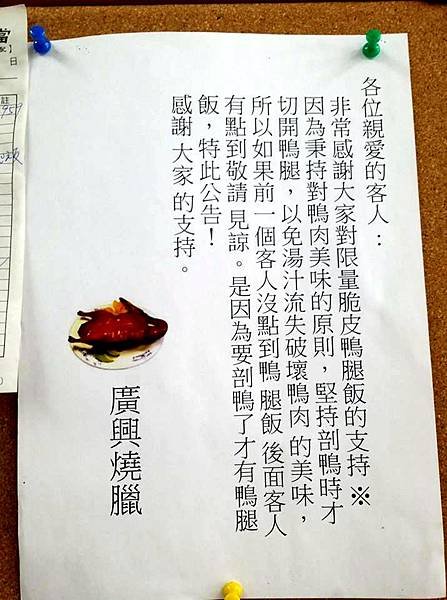 各位親愛的客人：
非常感謝大家對限量脆皮鴨腿飯的支持※
因為秉持對鴨肉美味的原則，堅持剖鴨時才
切開鴨腿，以免湯汁流失破壞鴨肉的美味，
所以如果前一個客人沒點到鴨腿飯後面客人
有點到敬請見諒。是因為要剖鴨了才有鴨腿
飯，特此公告！
感謝大家的支持。
廣興燒臘
當
日
註